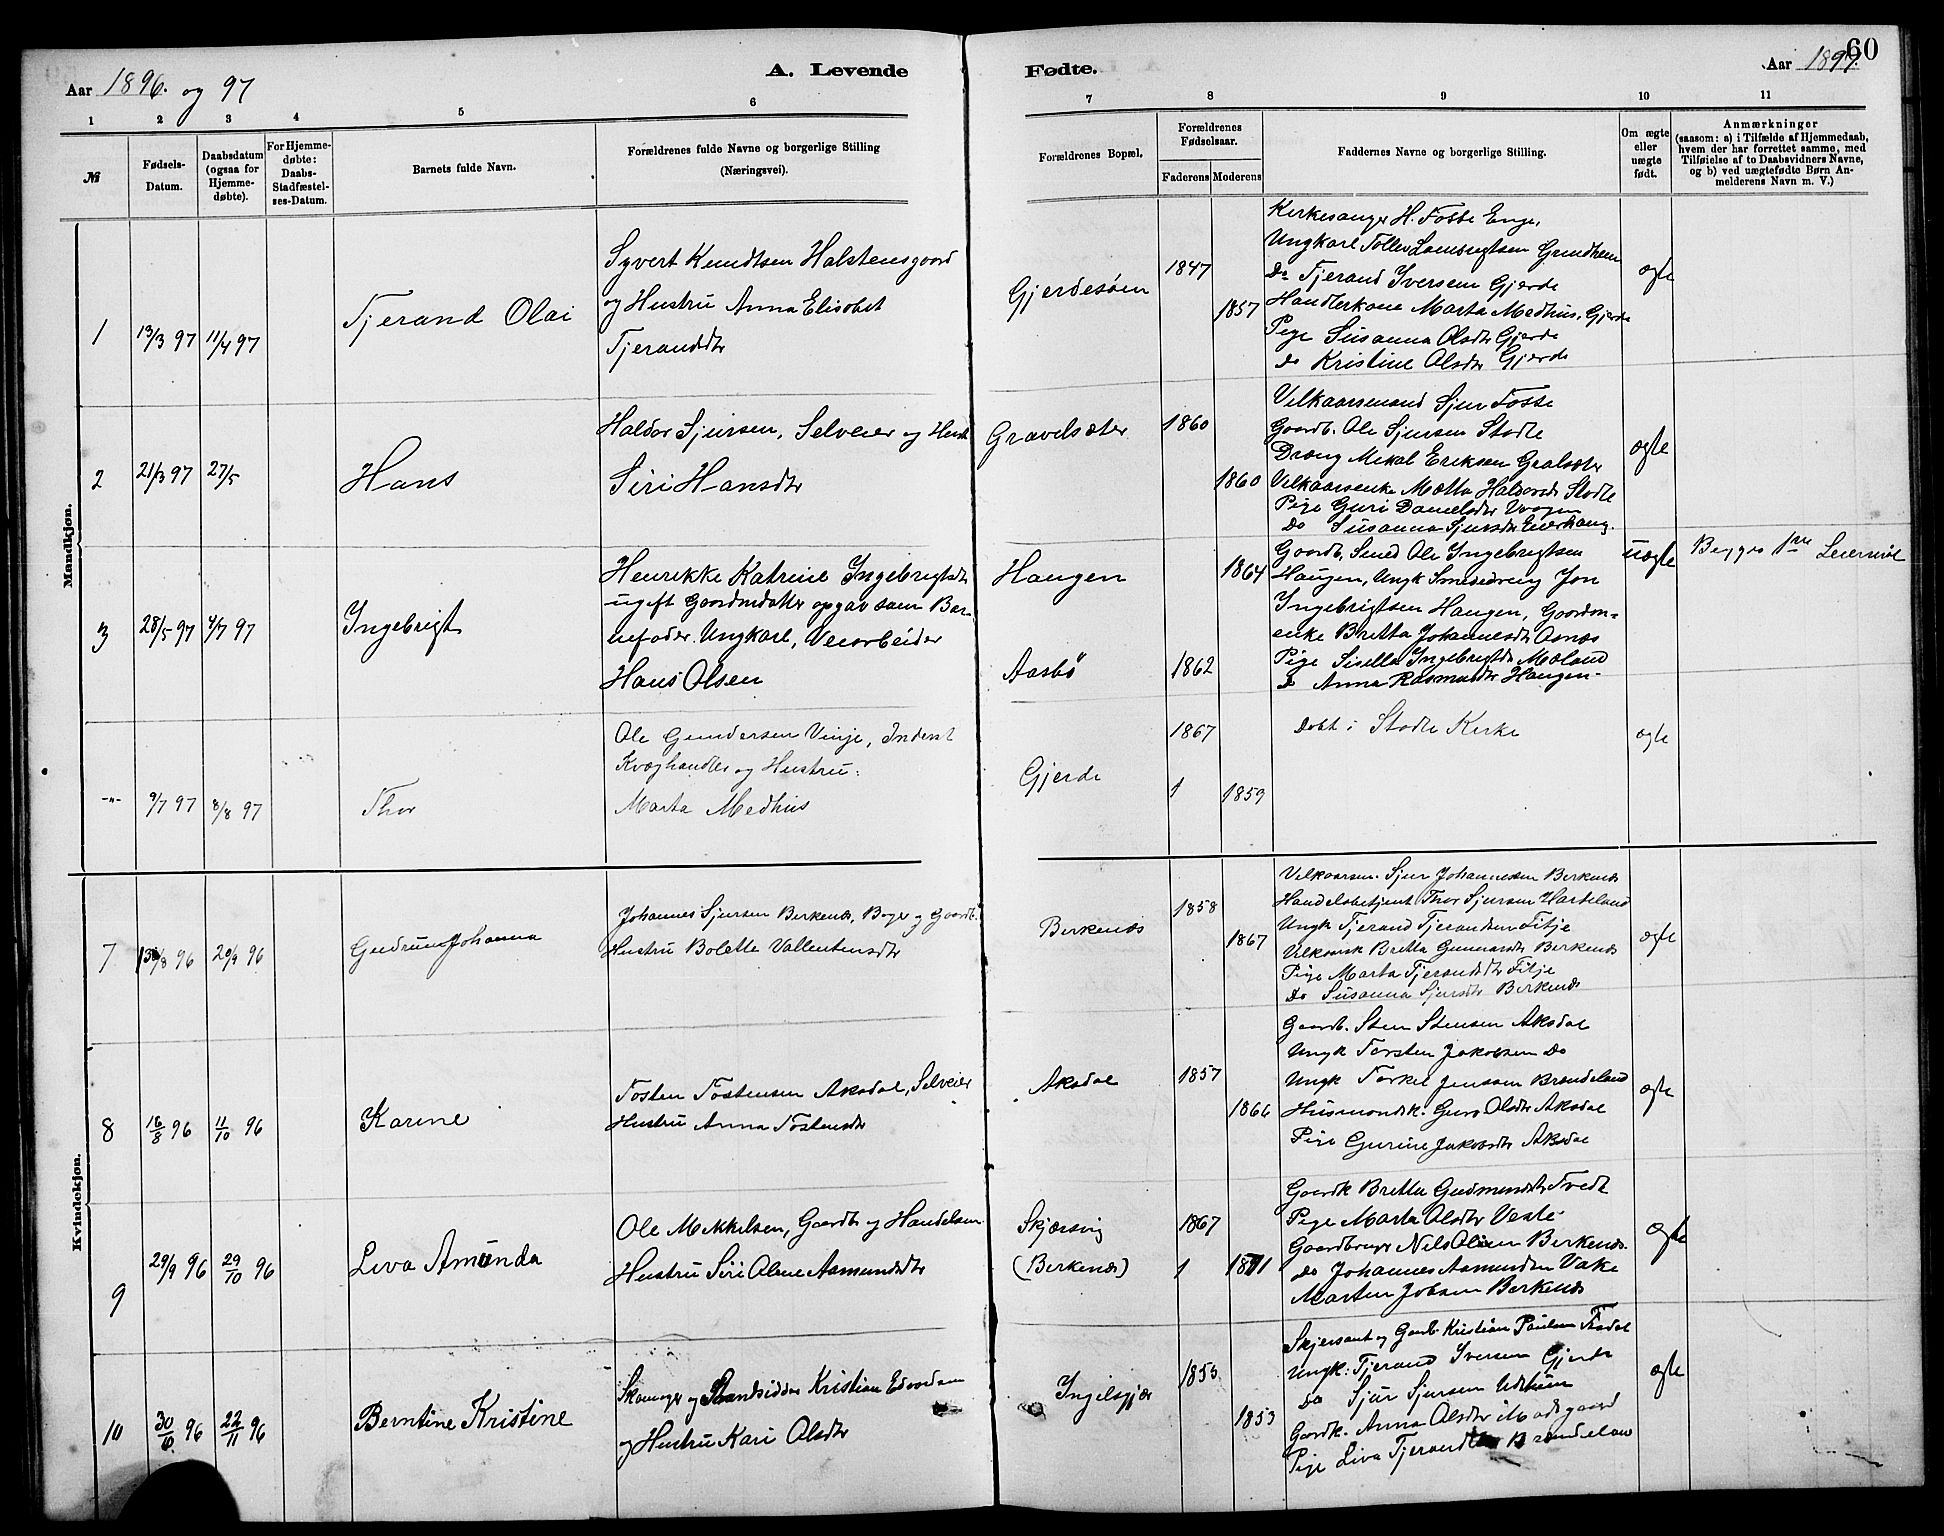 60
Aar 1896. og 97
A. Levende
Fødte.
Aar 1897.
1 2 3 4 5 6 7 8 9 10 11
№
Fødsels-Datum.
Daabsdatum (ogsaa for Hjemme-døbte).
For Hjemme-døbte: Daabs-Stadfæstel-ses-Datum.
Barnets fulde Navn.
Forældrenes fulde Navne og borgerlige Stilling
(Næringsvei).
Forældrenes Bopæl.
Forældrenes Fødselsaar.
Faderens Moderens
Faddernes Navne og borgerlige Stilling.
Om ægte eller uægte født.
Anmærkninger
(saasom: a) i Tilfælde af Hjemmedaab,
hvem der har forrettet samme, med
Tilføielse af to Daabsvidners Navne,
og b) ved uægtefødte Børn An-
melderens Navn m. V.)
Mandkjøn.
1 13/3 97 11/4 97 Tjerand Olai
Syvert Knudtsen Halstensgaard
og Hustru Anna Elisabet
Tjerandsdtr
Gjerdesøen 1847 1857
Kirkesanger H. Fosse Enge,
Ungkarl Tollev Lambregtsen Grindheim
Do Tjerand Iversen Gjerde
Handlerkone Marta Medhus, Gjerde
Pige Susanna Olsdtr Gjerde
Do Kristine Olsdtr Gjerde
ægte
2 21/3 97 27/5 Hans
Haldor Sjursen, Selveier og Hustr
Siri Hansdtr
Gravelsæter 1860 1860
Velkaarsmand Sjur Fosse
Gaardb. Ole Sjursen Stødle
Dreng Mikal Eriksen Gralsæter
Velkaarsenke Metta Haldorsd Stødle
Pige Guri Danielsdtr Vaagen
Do Susanna Sjursdtr
ægte
3 28/5 97 4/7 97 Ingebrigt
Henrikke Katrine Ingebrigtsdtr
ugift Gaardmdatter opgav som Bar-
nefader, Ungkarl, Veiarbeider
Hans Olsen
Haugen 1864
Aasbø 1862
Gaardb. Smed Ole Ingebrigtsen
Haugen, Ungk Smededreng Jon
Ingebrigtsen Haugen, Gaardm-
enke Britta Johannesdtr Aanæs
Pige Sisella Ingebrigtsd Mæland
Do Anna Rasmusdtr Haugen-
uægte
Begges 1ste Leiermål
-"- 9/7 97 8/8 97 Thor
Ole Gundersen Vinje, Inderst
Kvæghandler og Hustru:
Marta Medhus
Gjerde 1867 1 1859
Døbt i Stødle Kirke
ægte
Kvindekjøn.
7 /8 96 20/9 96 Gudrun Johanna
Johannes Sjursen Berkenæs, Bager og Gaardb.
Hustru Bolette Vallentinsdtr
Berkenæs 1858 1867
Velkaarsm. Sjur Johannesen Berkenæs
Handelsbetjent Thor Sjursen Harteland
Ungk Tjerand Tjerandsen Fitje
Velkaarsk Britta Gunnarsdtr Berkenæs
Pige Marta Tjerandsdtr Fitje
Do Susanna Sjursdtr Berkenæs
ægte
8 16/8 96 11/10 96 Karine
Tosten Tostensen Aksdal, Selveier
Hustru Anna Tostensdtr
Aksdal 1857 1866
Gaardb. Sten Stensen Aksdal
Ungk Torsten Jakobsen Do
Ungk Torkel Jenssen Brendeland
Husmandsk. Guro Olsdtr Aksdal
Pige Gurine Jakobsdtr Aksdal
ægte
9 29/9 96 29/10 96 Liva Amunda
Ole Mikkelsen, Gaardb og Handelsm
Hustru Siri Oline Aamundsdtr
Skjærsvig
(Berkenæs) 1867 1 1871
Gaardk Britta Gudmundsdtr Tvedt
Pige Marta Olsdtr Veste
Gaardbruger Nils Olsen Berkenæs.
Do Johannes Aamundsen Vake
Marten Jobsen Berkenæs
ægte
10 30/10 96 22/11 96 Berntine Kristine
Skomager og Strandsidder Kristian Edvardsen
og Hustru Kari Olsdtr
Ingilsgjær 1853 1853
Skjersant og Gaardb Kristian Paulsen
Ungk: Tjerand Iversen Gjerde
Do Sjur Sjursen
Gaardk. Anna Olsdtr Madsgaard
Pige Liva Tjerandsdtr Brendeland
ægte